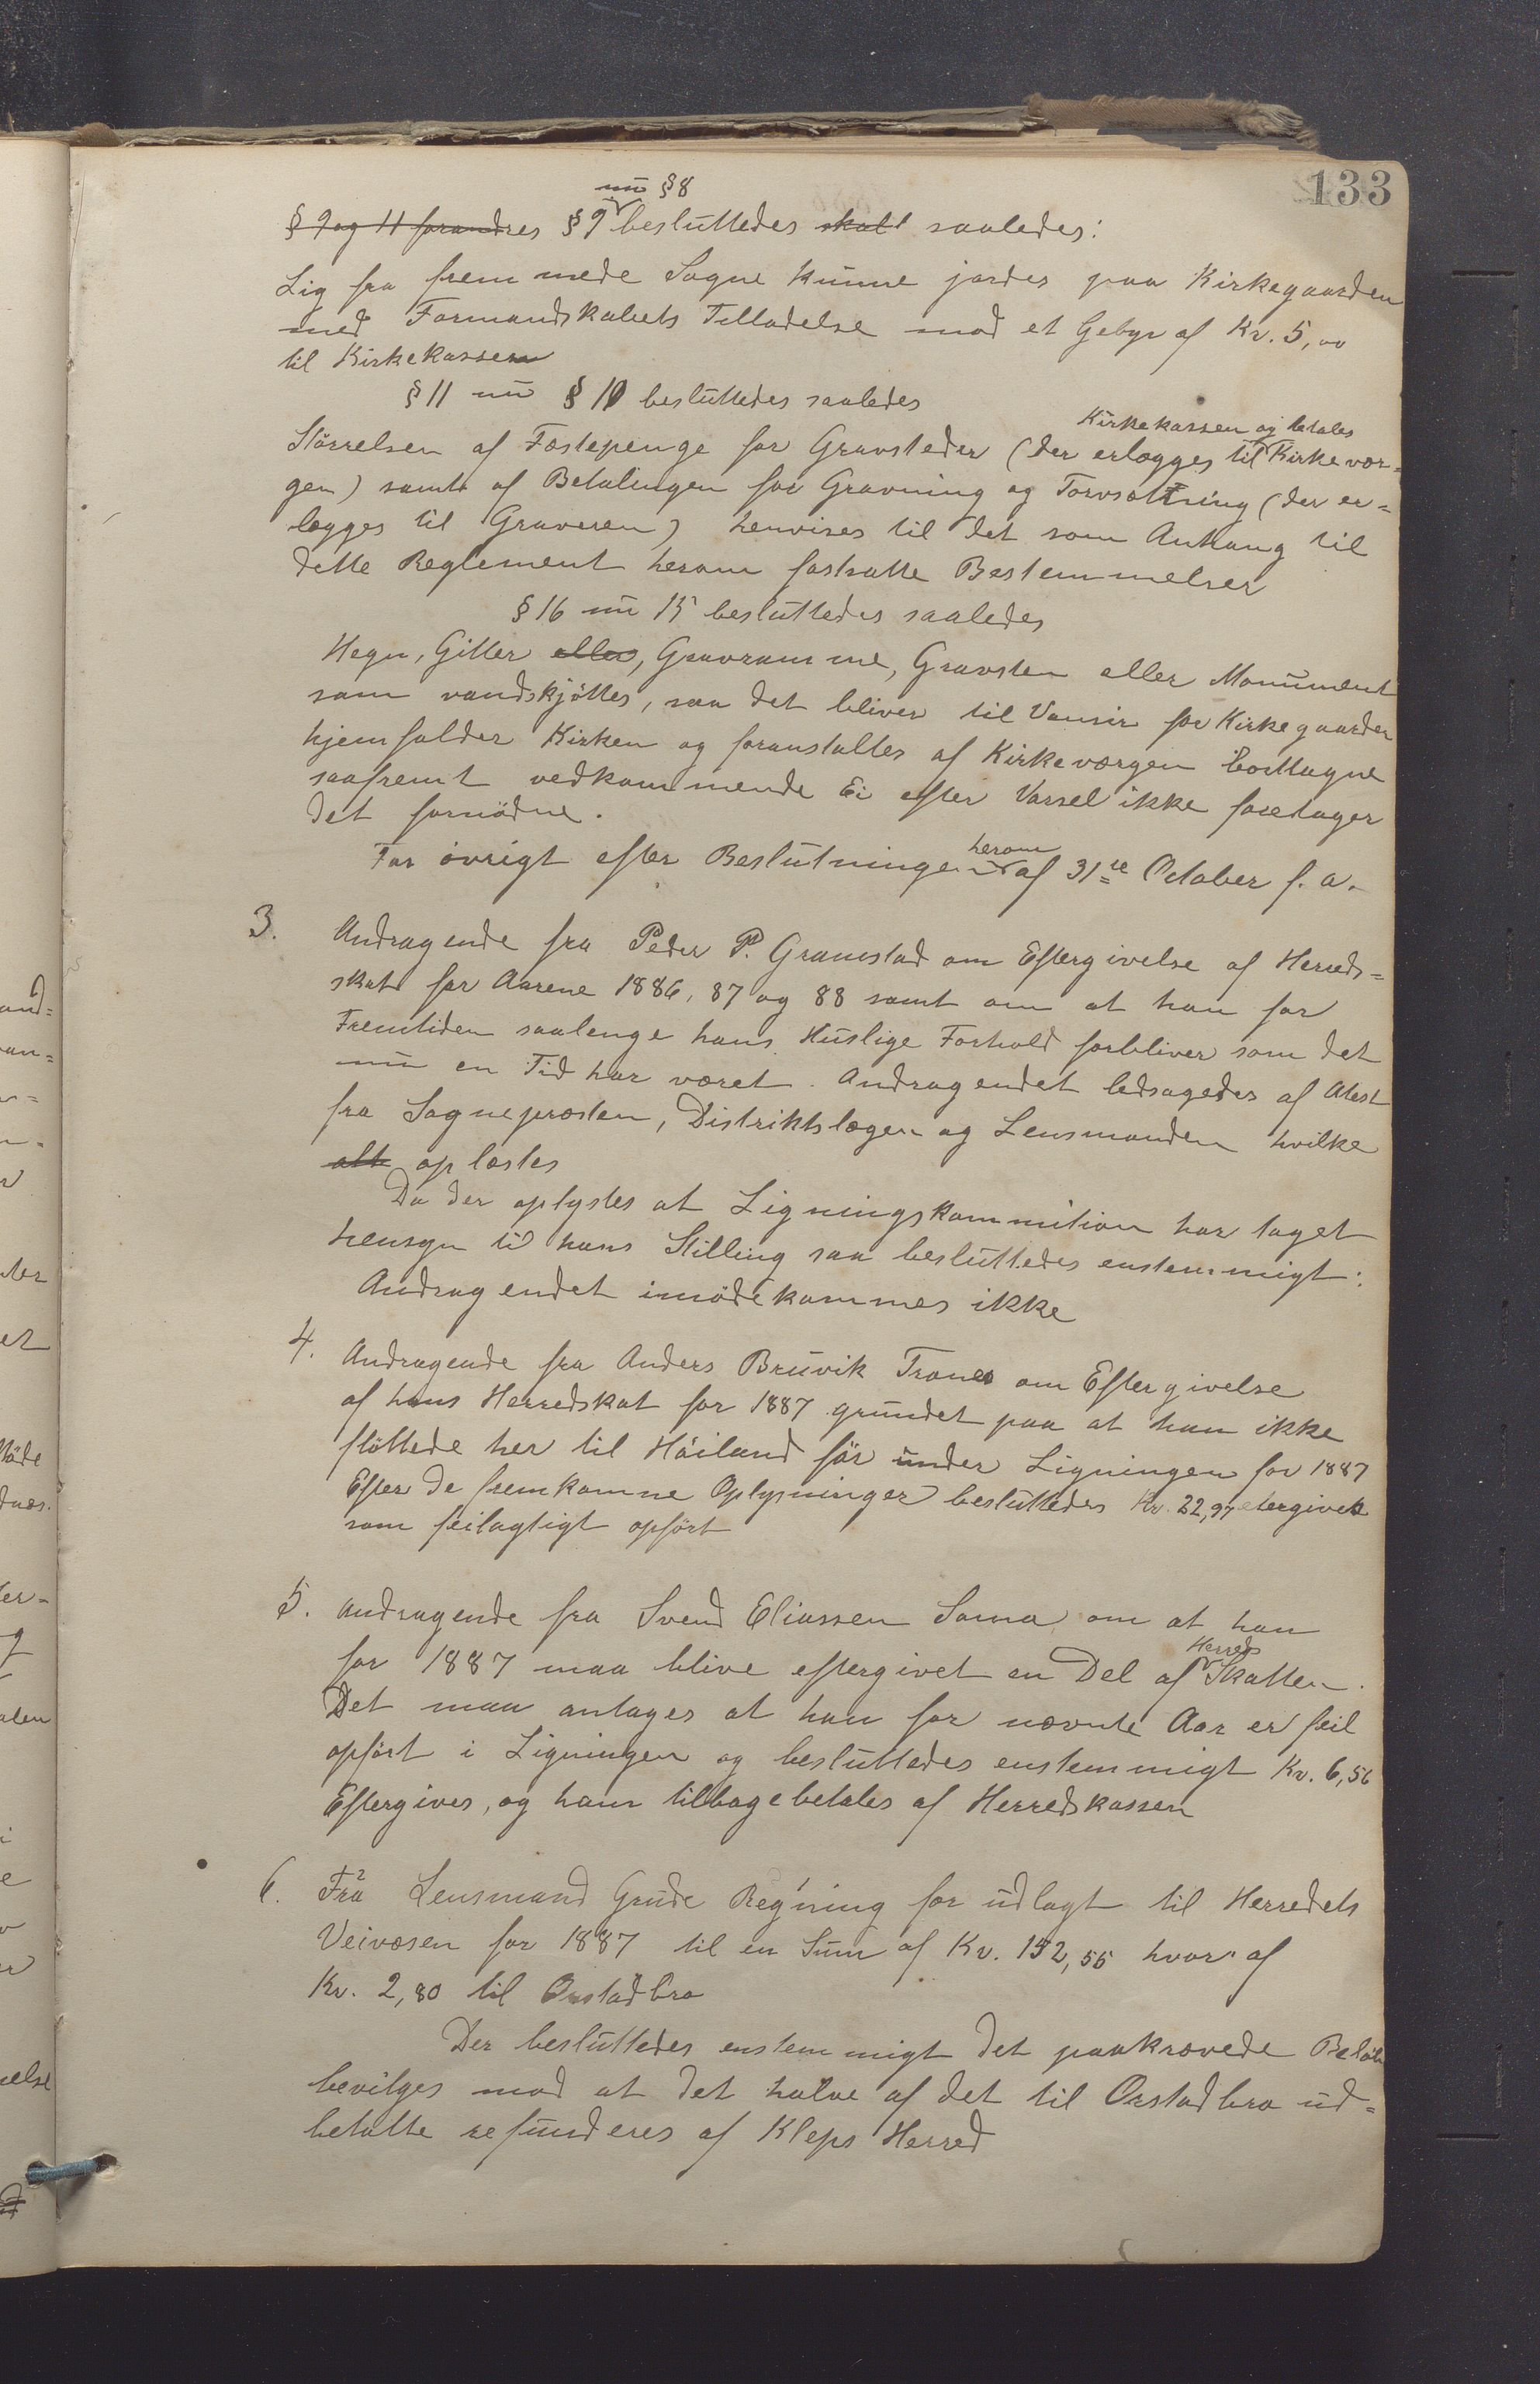 133
nu §8
§ 9 og 11 forandres § 9 besluttedes skal saaledes:
Lig fra fremmede Sogne kunne jordes paa Kirkegaarden
med Formandskabets Tilladelse mod et Gebyr af Kr. 5,00
til Kirkekassen
§ 11 nu § 10 besluttedes saaledes
Kirkekassen og betales
Störrelsen af Fæstepenge for Gravsteder (der erlægges til Kirkevær=
gen) samt af Betalingen for Gravning og Torvsættning (der er=
lægges til Graveren) henvises til det som Anhang til
dette Reglement herom fastsatte Bestemmelser
§ 16 nu 15 besluttedes saaledes
Hegn, Gitter eller, Gravramme, Gravsten eller Monument
som vandskjöttes, saa det bliver til Vansir for Kirkegaarden
hjemfalder Kirken og foranstaltes af Kirkeværgen borttagne
saafremt vedkommende Ei efter Varsel ikke foretager
det fornödne.
herom
For övrigt efter Beslutningen af 31te October f. a.
3. Andragende fra Peder P. Gramstad om Eftergivelse af Herreds=
skat for Aarene 1886, 87 og 88 samt om at han for
Fremtiden saalenge hans Huslige Forhold forbliver som det
nu en Tid har været. Andragendet ledsagedes af Atest
fra Sognepræsten, Distriktslægen og Lensmanden hvilke
alt oplæstes
Da der oplystes at Ligningskommition har taget
hensyn til hans Stilling saa besluttedes enstemmigt:
Andragendet imödekommes ikke
4. Andragende fra Anders Bruvik Trones om Eftergivelse
af hans Herredskat for 1887 grundet paa at han ikke
flöttede her til Höiland för under Ligningen for 1887
Efter de fremkomne Oplysninger besluttedes Kr. 22,97 etergivet
som feilagtigt opfört
5. Andragende fra Svend Eliassen Soma om at han
Herreds
for 1887 maa blive eftergivet en Del af Skatten.
Det maa antages at han for nævnte Aar er feil
opfört i Ligningen og besluttedes enstemmigt Kr. 6,56
Eftergives, og ham tilbagebetales af Herredskassen
6. Fra Lensmand Grude Regning for udlagt til Herredets
Veivæsen for 1887 til en Sum af Kr. 152,55 hvoraf
Kr. 2,80 til Orstad bro
Der besluttedes enstemmigt det paakrævede Belöb
bevilges mod at det halve af det til Orstad bro ud=
betalte refunderes af Kleps Herred